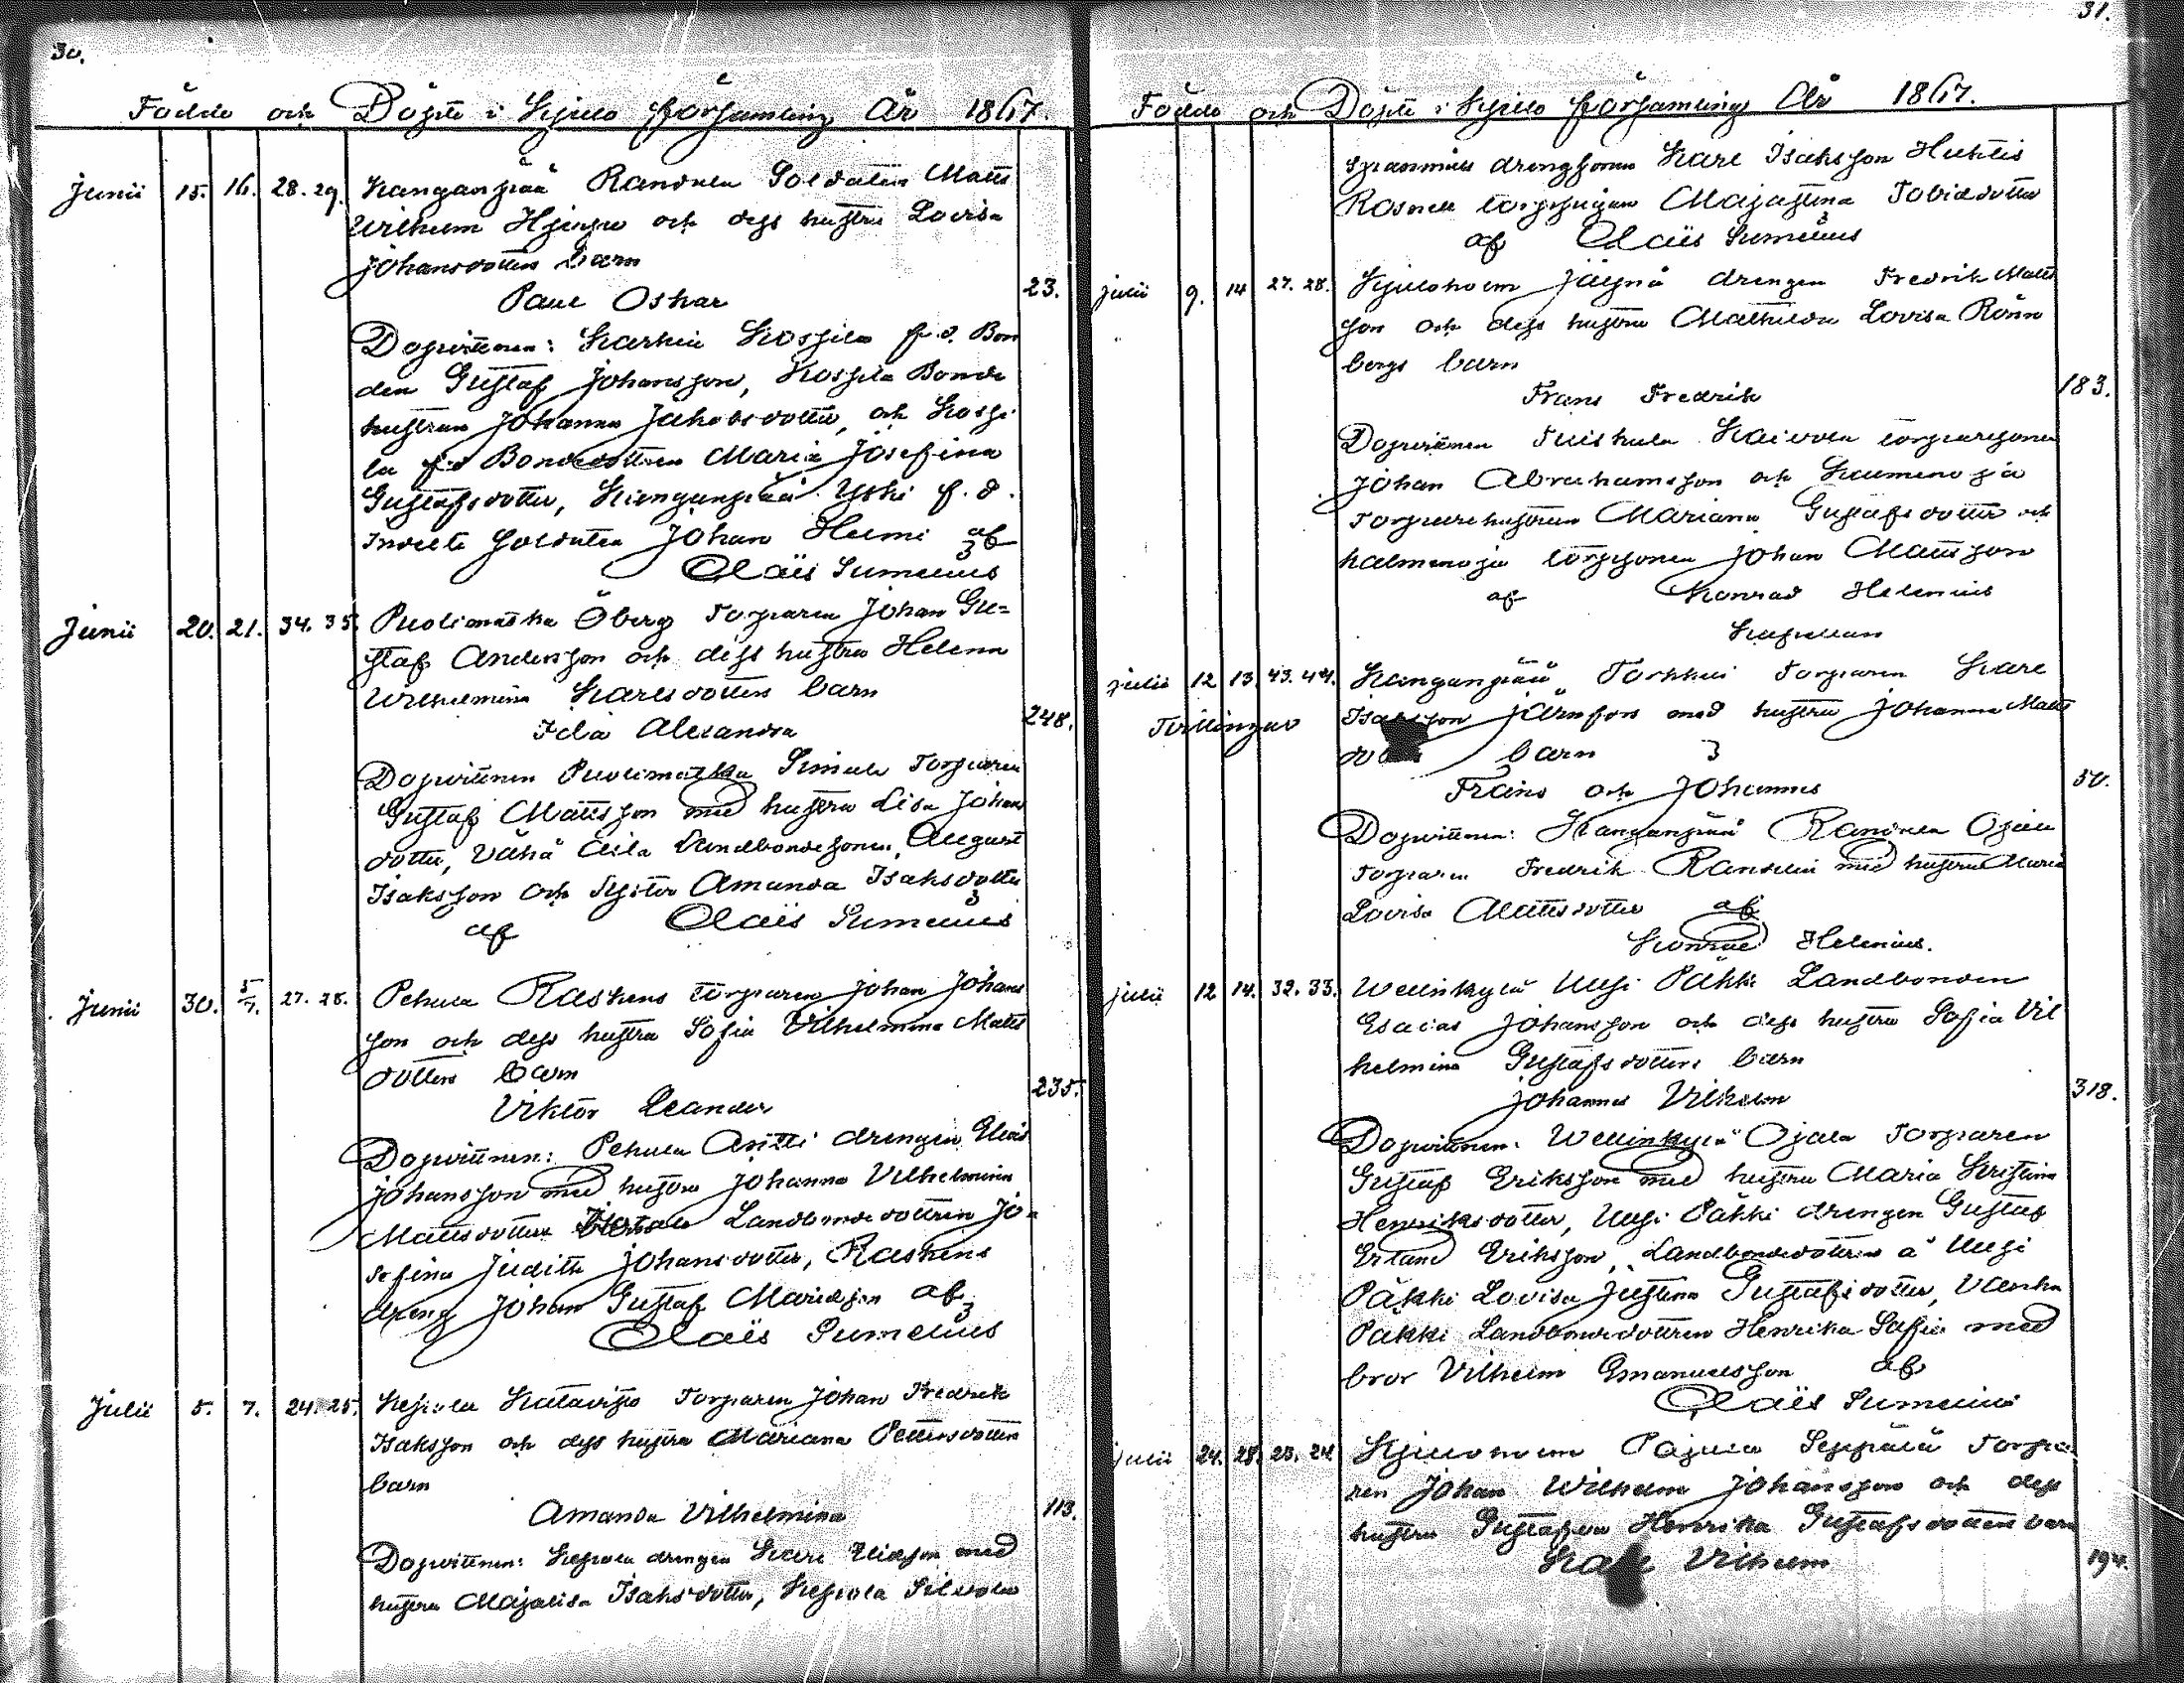 30.
Födde och Döpte i Kjulo församling År 1867.
Junii 15. 16. 28. 29. Kanganpää Randula Soldaten Matts
Wilhelm och dess hustru Lovisa
Johansdotters barn
Paul Oskar
23.
Dopvittnen: Karhia Kospila f.d. Bon
den Gustaf Johansson, Kospila Bonde
hustrun Johanna Jakobsdotter, och Kospi
la f.d Bondedottren Maria Josefina
Gustafsdotter, Kanganpää Yski f.d.
Indelte Soldaten Johan Helmi af
Olaïs Sumelius
Junii 20. 21. 34. 35. Puolimatka Öberg Torparen Johan Gu=
staf Andersson och dess hustru Helena
Wilhelmina Karlsdotters barn
Ida Alexandra
248.
Dopvittnen Puolimatka Simula Torparen
Gustaf Mattsson med hustru Lisa Johans
dotter, Vähä Landbondesonen August
Isaksson och Syster Amanda Isaksdotter
af Olaïs Sumelius
Junii 30. 5/7. 27. 28. Pehula Raskens torparen Johan Johans
son och dess hustru Sofia Vilhelmina Matts
dotters barn
235.
Viktor Leander
Dopvittnen: Pehula Antti drengen Elias
Johansson med hustru Johanna Vilhelmina
Mattsdotter Landbondedottren Jo=
sefina Judith Johansdotter, Raskens
dreng Johan Gustaf af
Olaïs Sumelius
Julii 5. 7. 24. 25. Kepola Katavisto Torparen Johan Fredrik
Isaksson och dess hustru Mariana Pettersdotters
barn
Amanda Vilhelmina
113.
Dopvittnen: Kepola drengen Karl Eliasson med
hustru Majalisa Isaksdotter, Kepola
31.
Födde och Döpte i Kjulo församling År 1867.
drengsonen Karl Isaksson Huhtis
Majastina Tobiasdotter
af Olaïs Sumelius
Julii 9. 14 27. 28. Kjuloholm drengen Fredrik Matts
son och dess hustru Mathilda Lovisa Rönn
bergs barn
Frans Fredrik
183.
Dopvittnen Tuiskula torparesonen
Johan Abrahamsson och
Torparehustrun Mariana Gustafsdotter och
torpsonen Johan Mattsson
af Konrad Helenius
Kapellan
Julii 12 13. 43. 44. Kanganpää Torkkui Torparen Karl
Tvillingar
Isaksson Järnfors med hustru Johanna Matts
barn
Frans och Johannes
50.
Dopvittnen: Kanganpää Randula Ojala
Torparen Fredrik Randelin med hustru Maria
Lovisa Mattsdotter af
Konrad Helenius.
Julii 12 14. 32. 33. Wellinkylä Uusi Päkki Landbonden
Esaias Johansson och dess hustru Sofia Vil
helmina Gustafsdotters barn
Johannes Vilhelm
318.
Dopvittnen: Wellinkylä Ojala Torparen
Gustaf Eriksson med hustru Maria Kristina
Henriksdotter, Uusi Päkki drengen Gustaf
Erland Eriksson, Landbondedottren å Uusi
Päkki Lovisa Justina Gustafsdotter, Vanha
Päkki Landbondedottren Henrika Sofia med
bror Vilhelm Emanuelsson af
Olaïs Sumelius
Julii 24. 28. 23. 24. Kjuloholm Pajula Seppälä Torpa
ren Johan Wilhelm Johansson och dess
hustru Gustafva Henrika Gustafsdotters barn
Vilhelm
194.